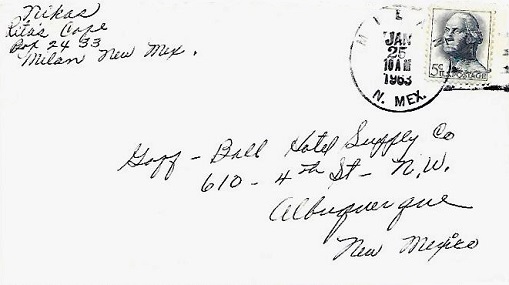 Nikas
Rita's Cafe
Box 2433
Milan New Mex.
MILAN
JAN
25
10 AM
1963
N. MEX.
5¢
U.S. POSTAGE
Goff - Ball Hotel Supply Co
610 - 4th St - N.W.
Albuquerque
New Mexico